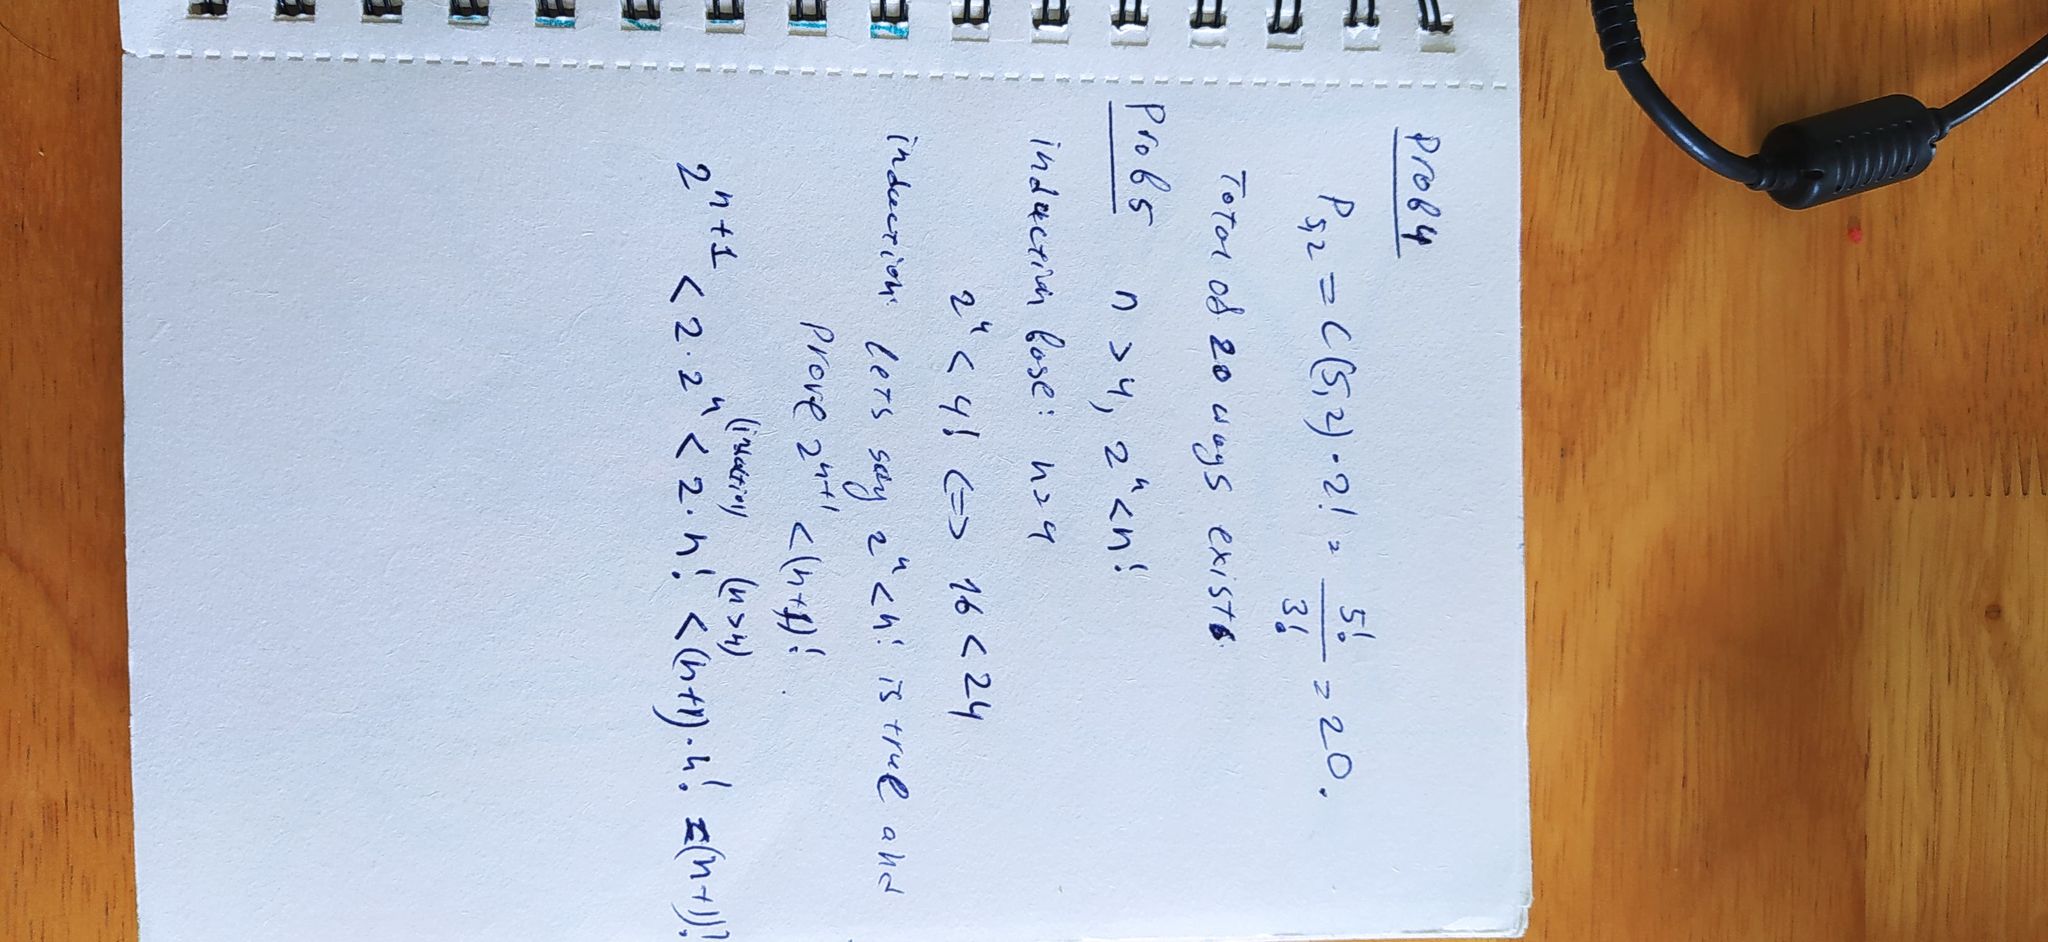 Prob 4
P₅,₂ = C(5,2) · 2! = 5!/3! = 20.
Total of 20 ways exists
Prob 5 n > 4, 2ⁿ < n!
induction base: n = 4
2⁴ < 4! <=> 16 < 24
induction: lets say 2ⁿ < n! is true and
prove 2ⁿ⁺¹ < (n+1)!.
(induction) (n > 4)
2ⁿ⁺¹ < 2 · 2ⁿ < 2 · n! < (n+1) · n! = (n+1)!